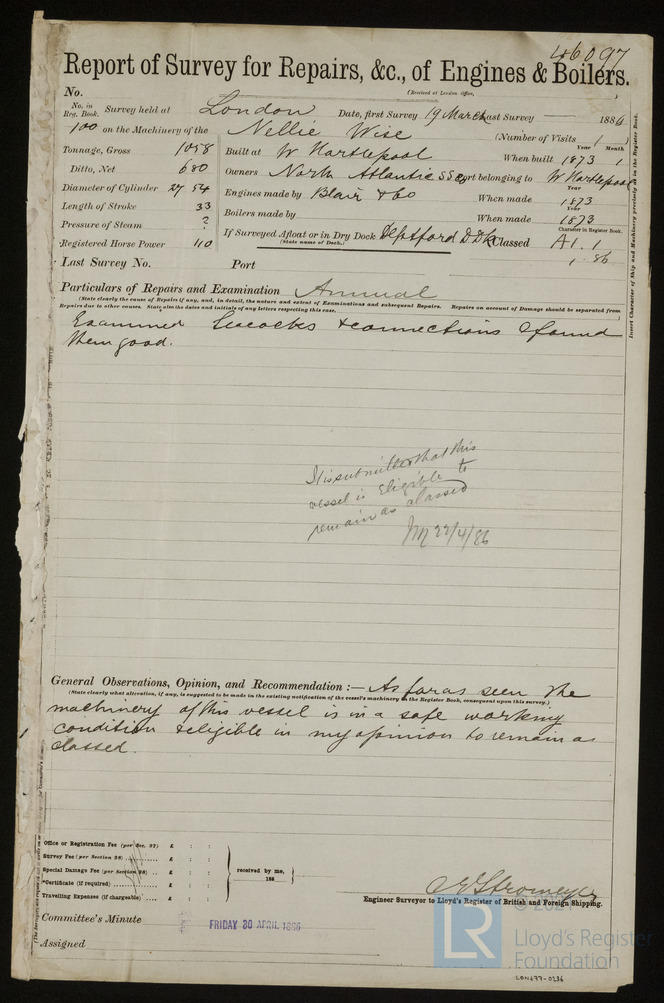 46097
Report of Survey for Repairs, &c., of Engines & Boilers.
(Received at London Office,
No.
No. in Reg. Book. Survey held at London Date, first Survey 19 March Last Survey 1886
100 on the Machinery of the Nellie Wise (Number of Visits 1)
Tonnage, Gross 1058
Ditto, Net 680
Diameter of Cylinder 27 54
Length of Stroke 33
Pressure of Steam ?
Registered Horse Power 110
Built at W Hartlepool When built 1873 1
Year Month
Owners North Atlantic SS Co Port belonging to W Hartlepool
Engines made by Blair & Co When made 1873
Year
Boilers made by When made 1873
Year
If Surveyed Afloat or in Dry Dock Deptford D Dk Classed A1. 1
(State name of Dock.) Character in Register Book.
1. 86
Last Survey No. Port
Particulars of Repairs and Examination Annual
(State clearly the cause of Repairs if any, and, in detail, the nature and extent of Examinations and subsequent Repairs. Repairs on account of Damage should be separated from
Repairs due to other causes. State also the dates and initials of any letters respecting this case.)
Examined Seacocks & connections & found
them good.
It is submitted that this
vessel is eligible to
remain as classed
22/4/86
General Observations, Opinion, and Recommendation :— As far as seen the
(State clearly what alteration, if any, is suggested to be made in the existing notification of the vessel's machinery in the Register Book, consequent upon this survey.)
machinery of this vessel is in a safe working
condition & eligible in my opinion to remain as
classed.
Office or Registration Fee (per Sec. 27) £ : :
Survey Fee (per Section 28) £ : :
Special Damage Fee (per Section 28) £ : :
*Certificate (if required) £ : :
Travelling Expenses (if chargeable) £ : :
received by me,
188
Stromeyer
Engineer Surveyor to Lloyd's Register of British and Foreign Shipping.
Committee's Minute FRIDAY 30 APRIL 1886
Assigned
Insert Character of Ship and Machinery precisely as in the Register Book.
© 2021
LR
Lloyd's Register
Foundation
LON677-0236